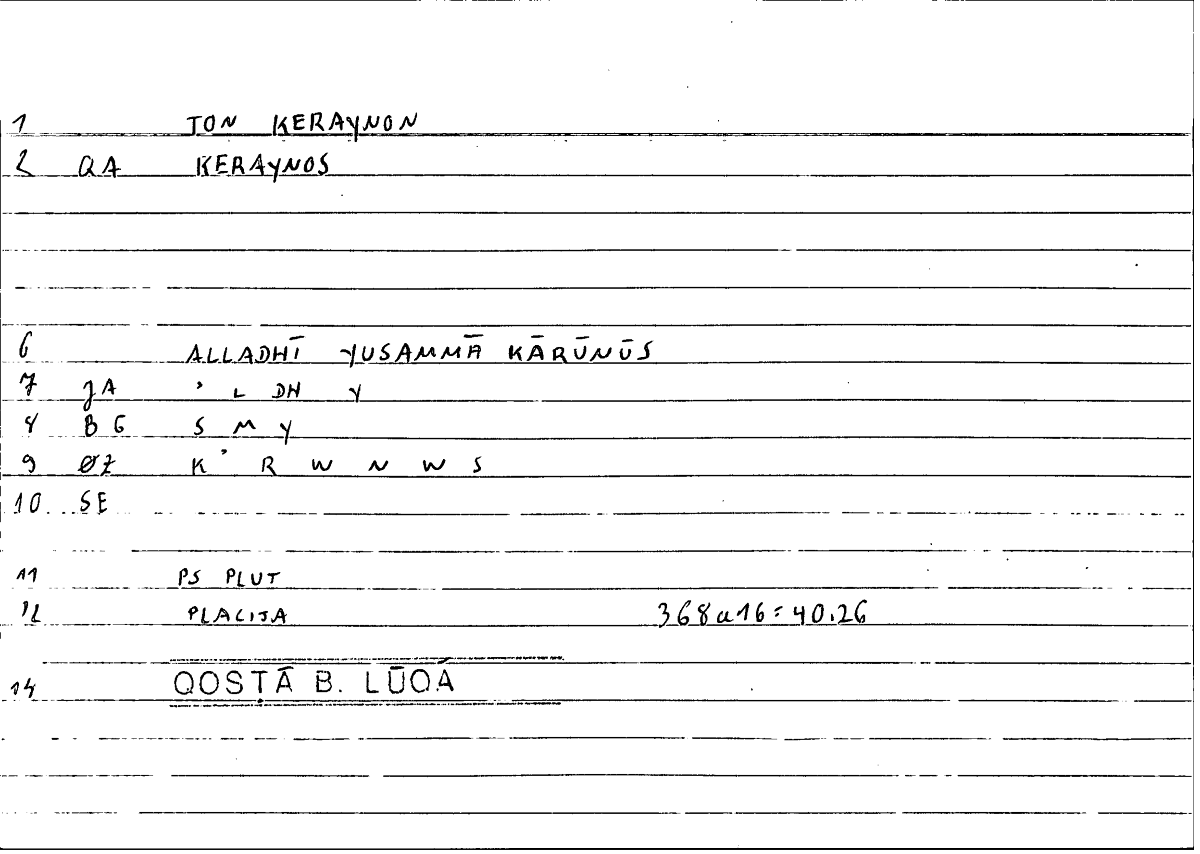 1 TON KERAYNON
2 QA KERAYNOS
6 ALLADHĪ YUSAMMĀ KĀRŪNŪS
7 JA ʾ L DH Y
8 BG S M Y
9 ØZ K ʾ R W N W S
10 SE
11 PS PLUT
12 PLACITA 368a16=40.26
14 QOSṬĀ B. LŪQÁ